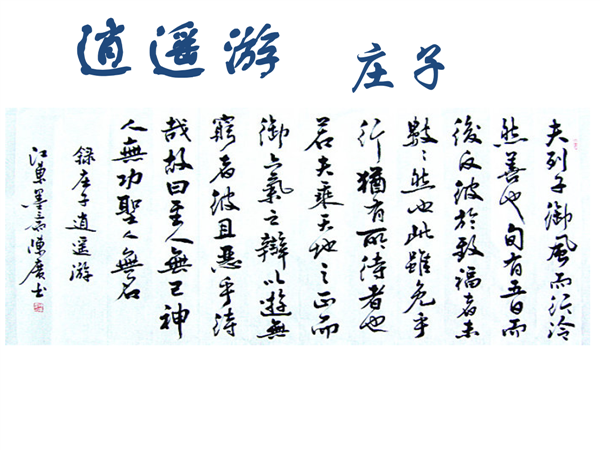 逍遥游 庄子
夫列子御風而行泠
然善也旬有五日而
後反彼於致福者未
數〻然也此雖免乎
行猶有所待者也
若夫乘天地之正而
御六氣之辯以遊無
窮者彼且惡乎待
哉故曰至人無己神
人無功聖人無名
録庄子逍遥游
江東墨